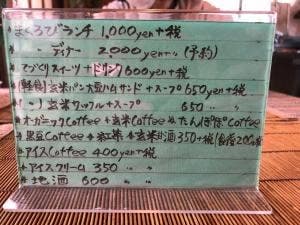 まくろびランチ 1,000yen+税
〃 ディナー 2000yen+〃 (予約)
てづくりスイーツ+ドリンク600yen+税
(軽食)玄米パン大豆ハムサンド+スープ650yen+税
(〃)玄米ワッフル+スープ 650 〃
オーガニックCoffee 玄米Coffee たんぽぽCoffee
黒豆Coffee 紅茶 玄米 350+税
アイスCoffee 400yen+税
アイスクリーム 350 〃
地酒 600 〃